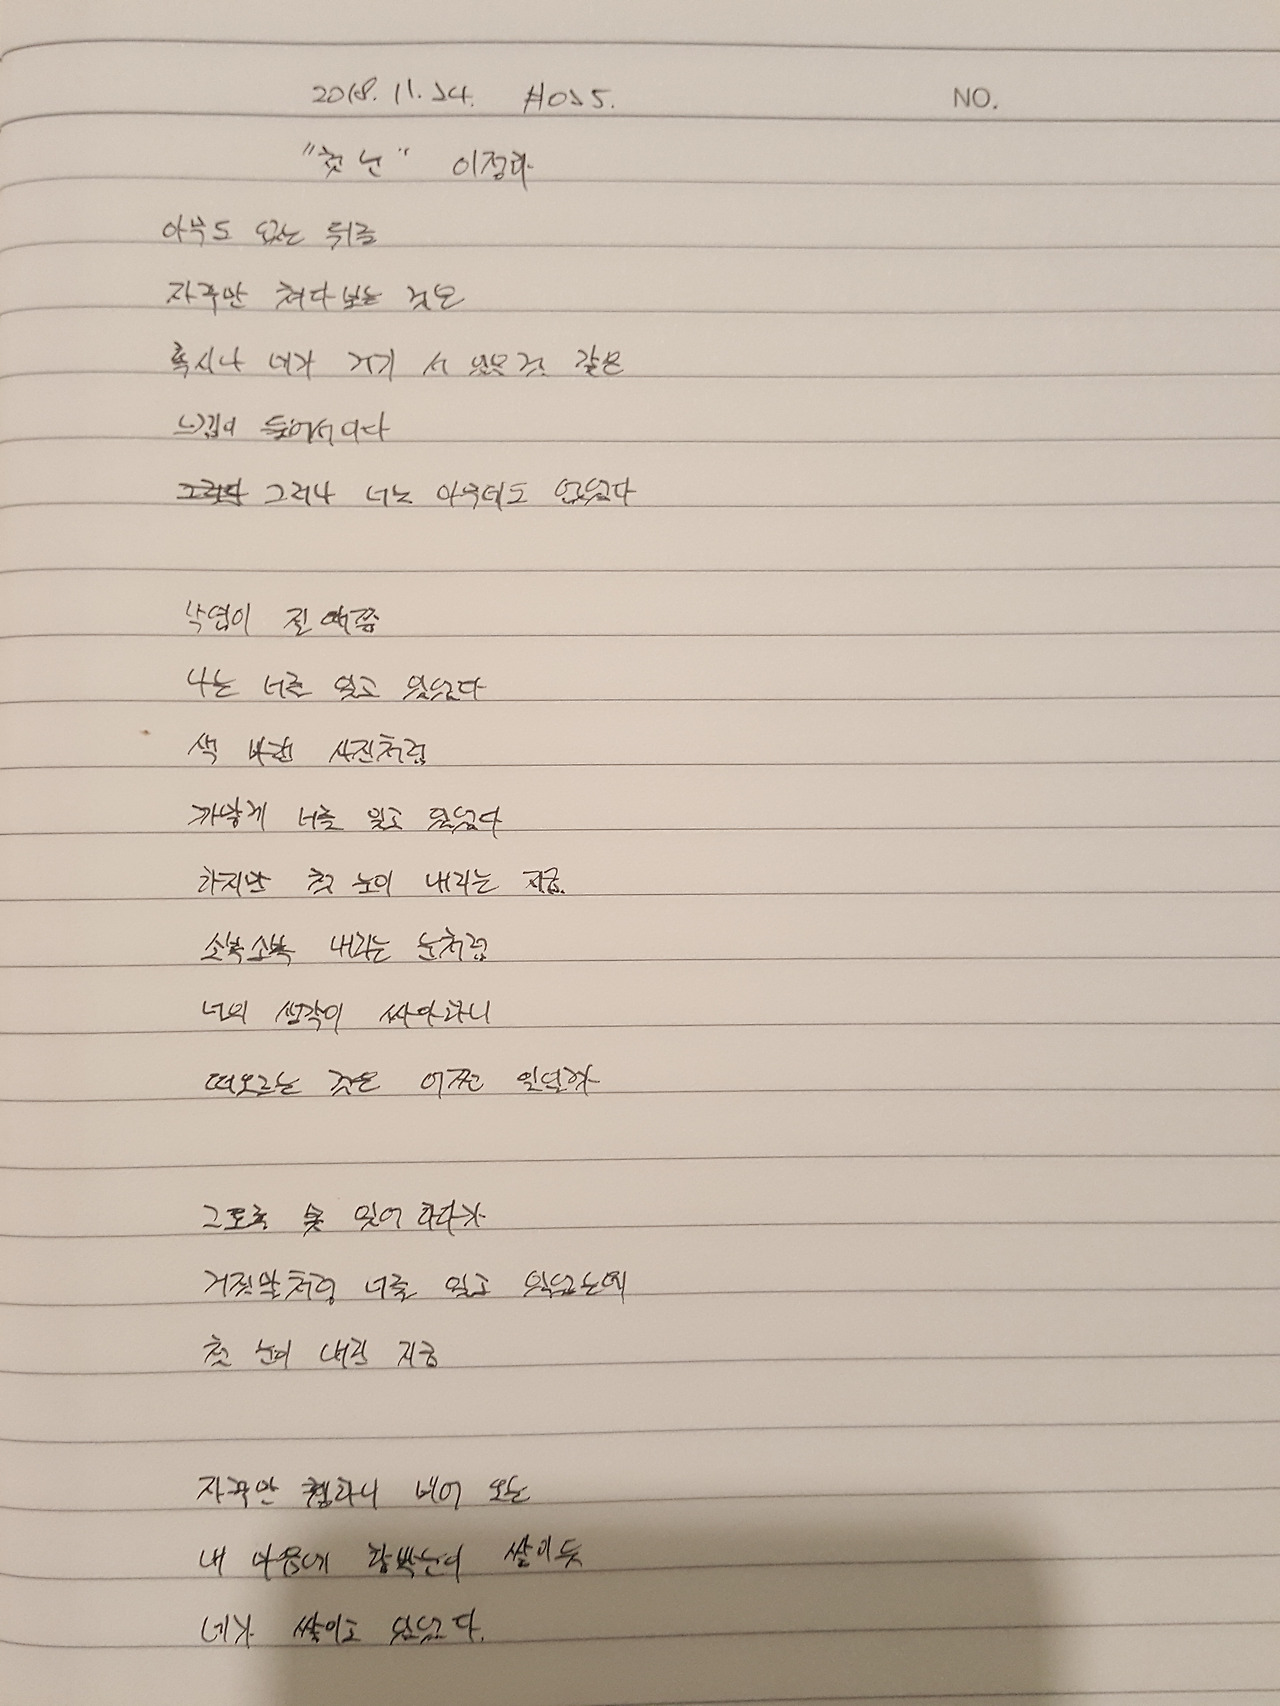 2018. 11. 24. #025. NO.
"첫 눈" 이정하
아무도 없는 뒤를
자꾸만 쳐다보는 것은
혹시나 네가 거기 서 있을 것 같은
느낌이 들어서이다
그러나 너는 아무데도 없었다
낙엽이 질 때쯤
나는 너를 잊고 있었다
색 바랜 사진처럼
까맣게 너를 잊고 있었다
하지만 첫 눈이 내리는 지금,
소복소복 내리는 눈처럼
너의 생각이 싸아하니
떠오르는 것은 어쩐 일일까
그토록 못 잊어 하다가
거짓말처럼 너를 잊고 있었는데
첫 눈이 내린 지금
자꾸만 휑하니 비어 오는
내 마음에 함박눈이 쌓이듯
네가 쌓이고 있었다.